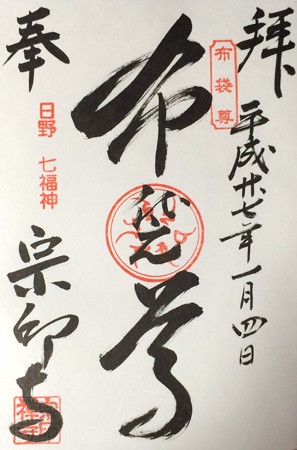 奉拝
布袋尊
平成廿七年一月四日
布袋尊
日野 七福神
宗印寺